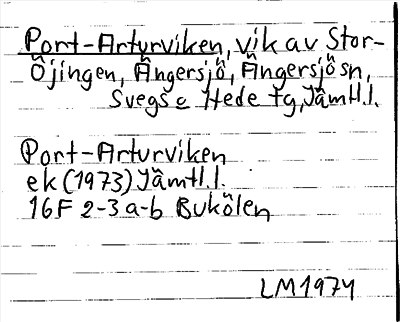 Port-Arturviken, vik av Stor-
Öjingen, Ängersjö, Ängersjö sn,
Svegs o Hede tg, Jämtl.l.
Port-Arturviken
ek (1973) Jämtl.l.
16F 2-3 a-b Bukölen
LM1974